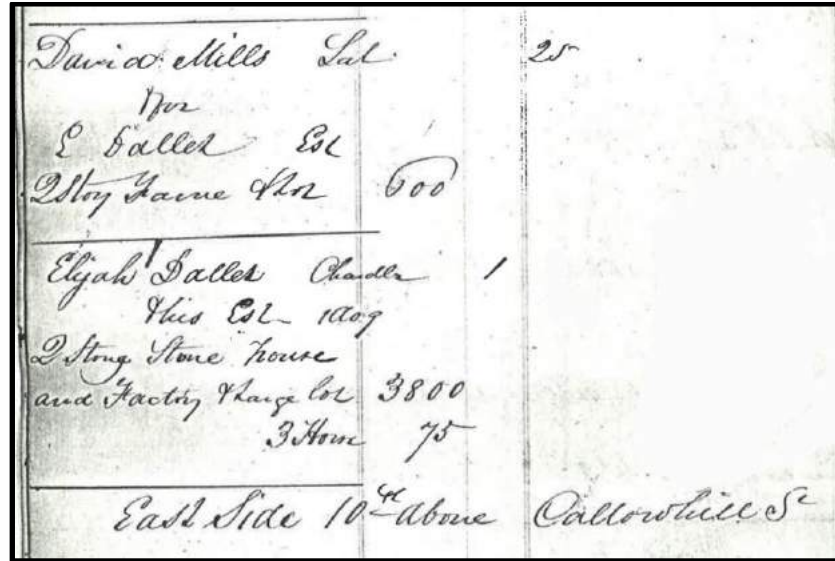 David Mills Lab 25
for
E Dallet Est
2 Story Frame & Lot 600
Elijah Dallet Chandler 1
& his Est 1 dog
2 Story Stone house
and Factory & large lot 3800
3 Horse 75
East Side 10th above Callowhill St